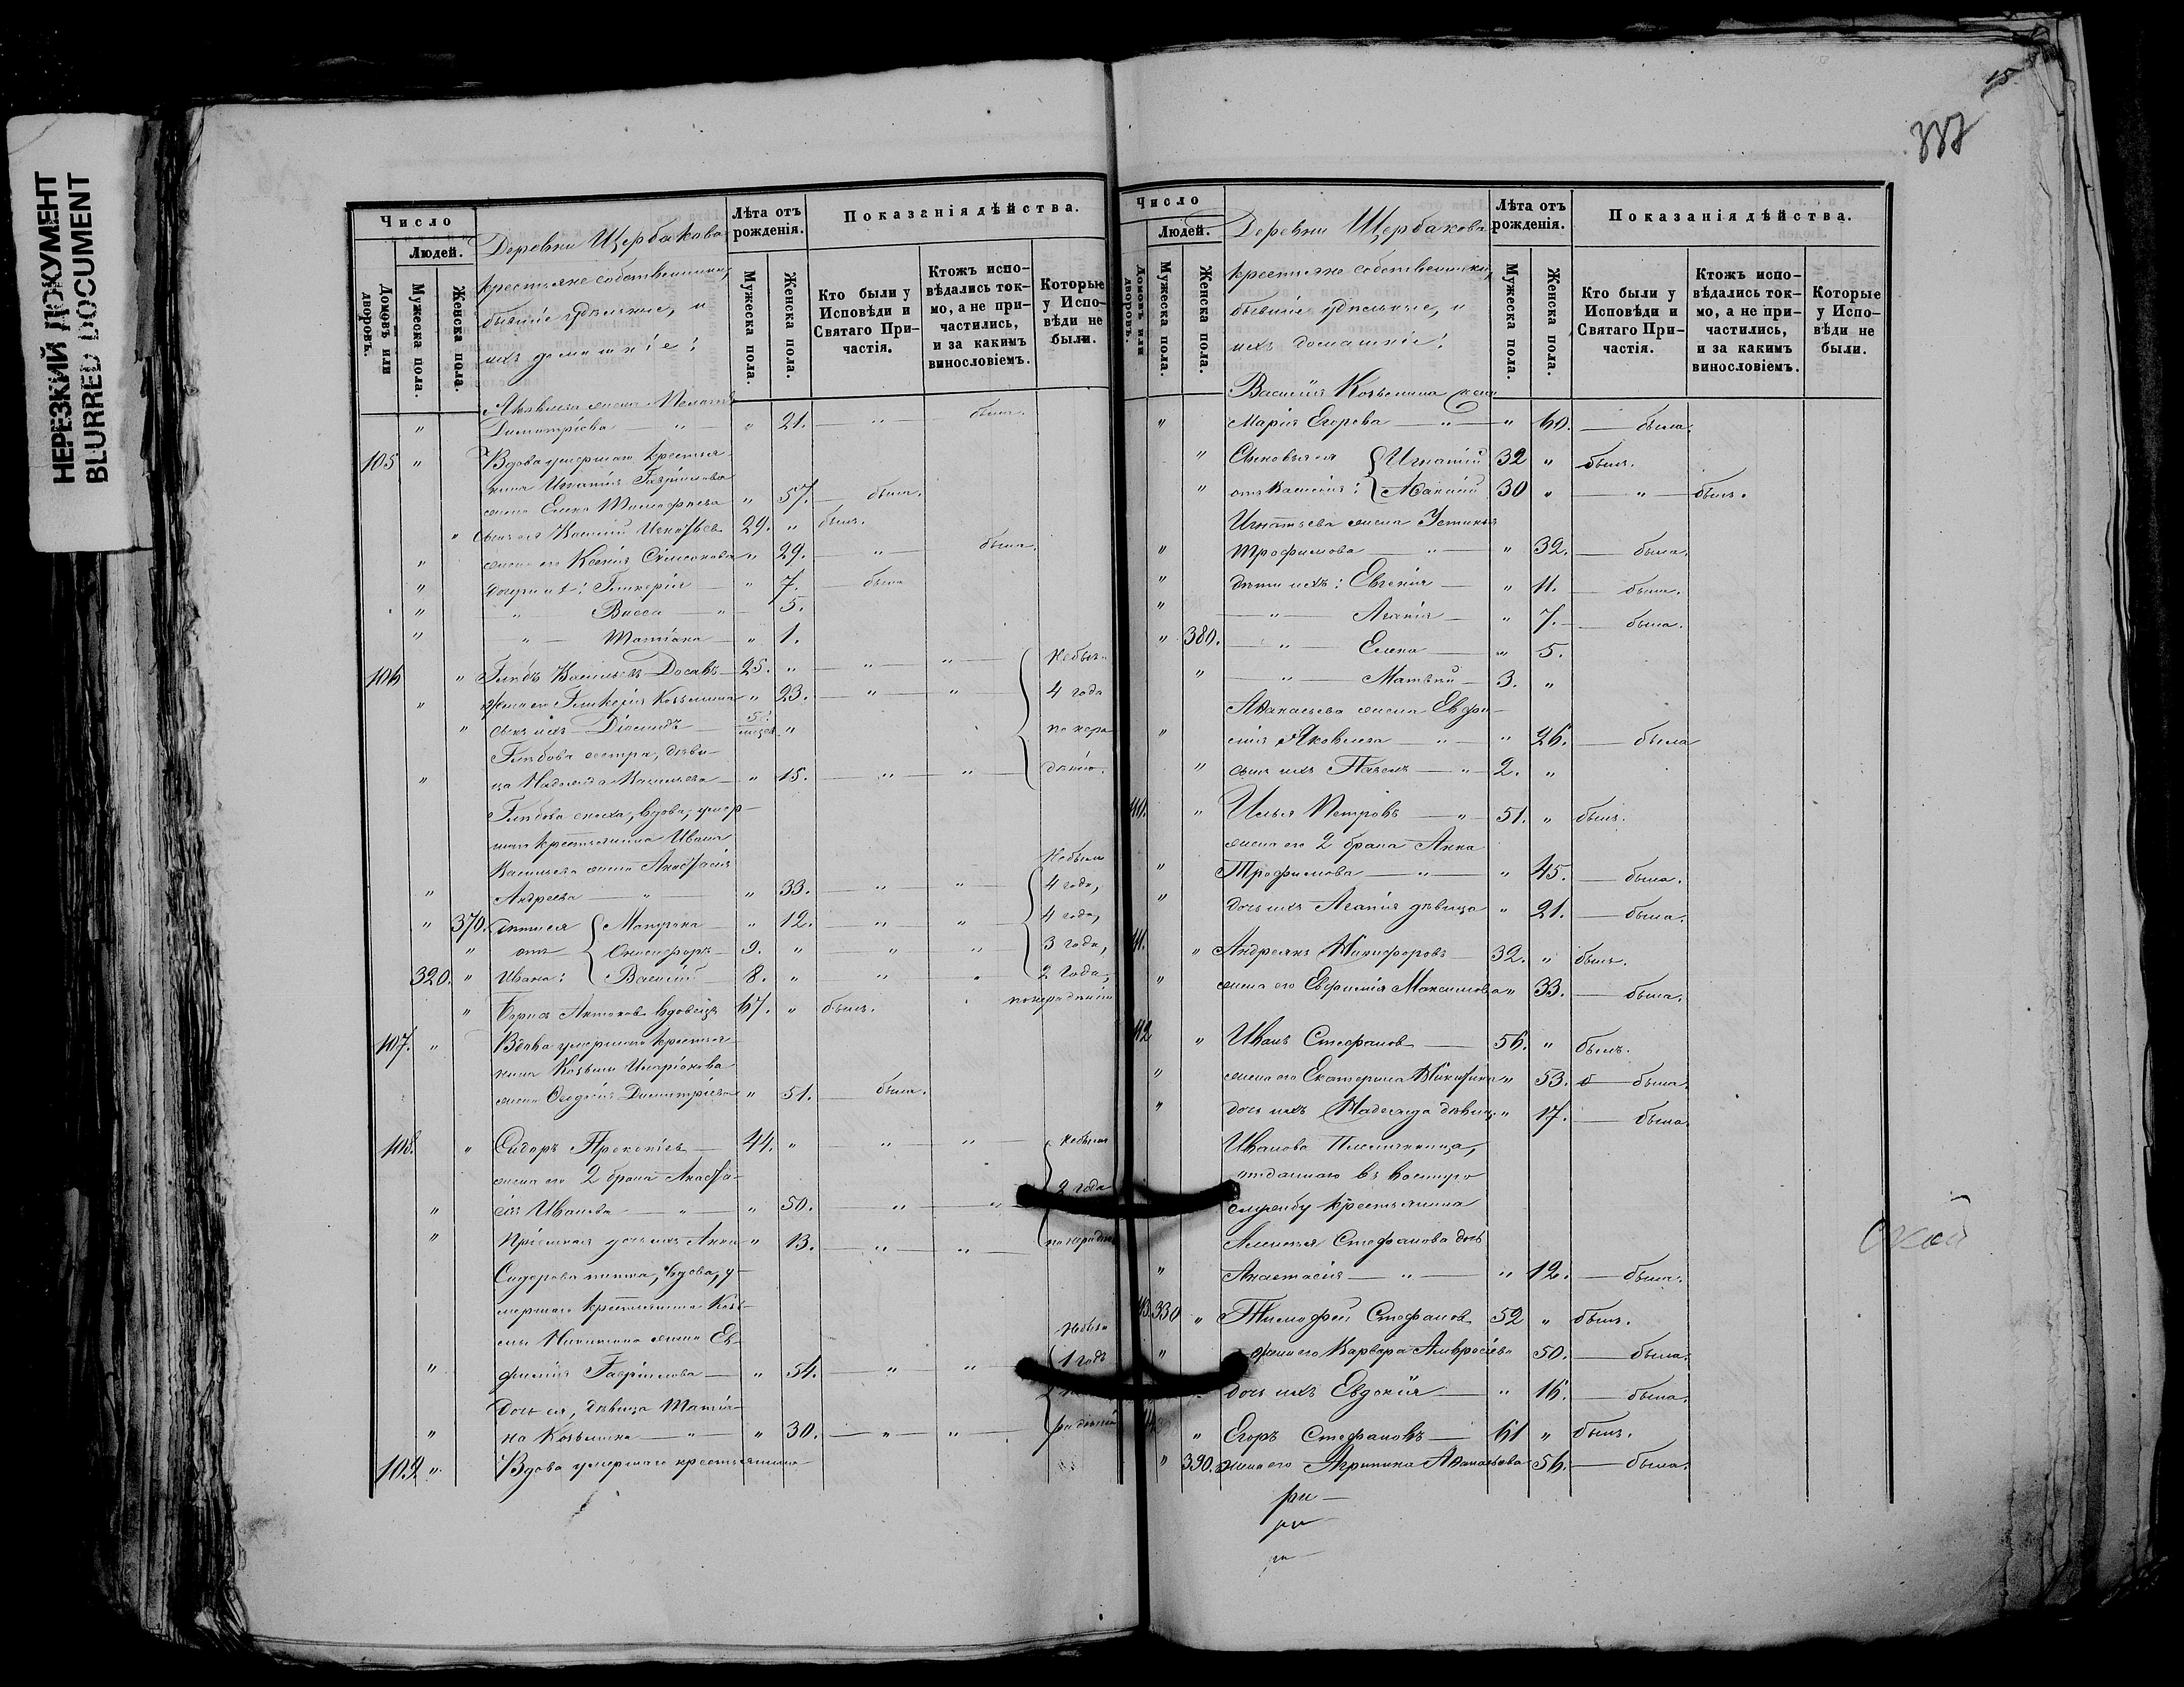 НЕРЕЗКИЙ ДОКУМЕНТ
BLURRED DOCUMENT
Число
Людей.
Домовъ или дворовъ.
Мужеска пола.
Женска пола.
Деревни Щербакова
крестьяне собственники,
бывшіе удѣльные, и
ихъ домашніе:
Лѣта отъ рожденія.
Мужеска пола.
Женска пола.
Показанія дѣйства.
Кто были у Исповѣди и Святаго Причастія.
Ктожъ исповѣдались токмо, а не причастились, и за какимъ винословіемъ.
Которые у Исповѣди не были.
жена Пелагія
" Димитріева — " — " 21. " была.
105 " Вдова умершаго крестья-
нина Игнатія Гавріилова
жена Елена Тимофеева " 57. — была.
" сынъ ея Василій Игнатьев 29. " былъ.
" жена его Ксенія Симеонова " 29. — " — была.
" дочери ихъ: Гликерія — " 7. — была
" — " — Васса — " — 5.
" — " — Татіана — " 1.
106 " Глѣбъ Васильевъ 25. " — " — " — Небылъ
" жена его Гликерія Козьмина " 23. — " — " 4 года
" сынъ ихъ Діомидъ — 5 мѣсяц. " по нера-
Глѣбова сестра, дѣви-
" ца Надежда Васильева — " 15. — " — " — дѣнію.
Глѣбова сноха, вдова, умер-
шаго крестьянина Ивана
Васильева жена Анастасія Небыли
" Андреева — " — " 33. — " — " 4 года,
" 370. дѣти ея Матрона — " 12. — " — " 4 года,
" отъ Онисифоръ — 9. " — " — " 3 года,
320. " Ивана: Василій — 8. " — " — " 2 года,
" Борисъ Антонов вдовецъ 67. " былъ. по нерадѣнію
107. " Вдова умершаго крестья-
нина Козьмы Иларіонова
жена Ѳеодосія Димитріева " 51. — была.
108. " Сидоръ Прокопіевъ — 44. " — " — " — небыли
жена его 2 брака Анастa-
" сія Иванова — " — " 50. — " — " 2 года
" Пріемная дочь ихъ Анна " 13. — " — " по нерадѣн
Сидорова тетка, вдова, у-
мершаго крестьянина Козь-
мы Никитина жена Ев- Небыла
" фимія Гавріилова — " 54. — " — " 1 годъ
дочь ея, дѣвица Татіа-
" на Козьмина — " — " 30. — " — " — радѣнію
109 " Вдова умершаго крестьянина
15
337
Число
Людей.
Домовъ или дворовъ.
Мужеска пола.
Женска пола.
Деревни Щербакова
крестьяне собственники,
бывшіе удѣльные, и
ихъ домашніе:
Лѣта отъ рожденія.
Мужеска пола.
Женска пола.
Показанія дѣйства.
Кто были у Исповѣди и Святаго Причастія.
Ктожъ исповѣдались токмо, а не причастились, и за какимъ винословіемъ.
Которые у Исповѣди не были.
Василія Козьмина жена
" Марія Егорова — " — " 60. — была.
" Сыновья ея Игнатій 32 " былъ.
" отъ Василія: Аѳанасій 30 " — " — былъ.
Игнатьева жена Устинья
" Трофимова — " — " 32. — была.
" дѣти ихъ: Евгенія — " 11. — была.
" — " — Агапія — " 7. — была.
" 380. — " — Елена — " 5.
" — " — Матвѣй — 3. "
Аѳанасьева жена Евфи-
" мія Яковлева — " — " 26. — была
" сынъ ихъ Павелъ — " — 2. "
110. " Илья Петровъ — " — 51. " былъ.
жена его 2 брака Анна
" Трофимова — " — " 45. — была.
" дочь ихъ Агапія дѣвица " 21. — была.
111. " Андреянъ Никифоровъ — 32. " былъ.
" жена его Евфимія Максимова " 33. — была.
112 " Иванъ Стефанов — 56. " былъ.
" жена его Екатерина Никитина " 53. — была.
" дочь ихъ Надежда дѣвица " 17. — была.
Иванова племянница,
отданнаго въ военную
службу крестьянина
Стефанова дочь
" Анастасія — " — " 12. — была.
113. 330 " Тимофей Стефанов 52 " былъ.
" жена его Варвара Амвросіева 50. — была.
дочь ихъ Евдокія — " 16. — была.
114 " Егоръ Стефановъ — 61 " былъ.
" 390. жена его Агрипина Аѳанасьева 56. — была.